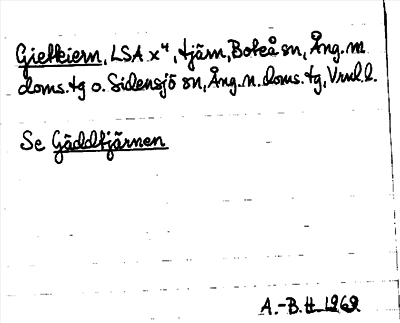 Gietkiern, LSA x⁴, tjärn, Boteå sn, Ång. m
doms. tg o. Sidensjö sn, Ång. n. doms. tg, Vrnl. l.
Se Gäddtjärnen
A.-B. H. 1969